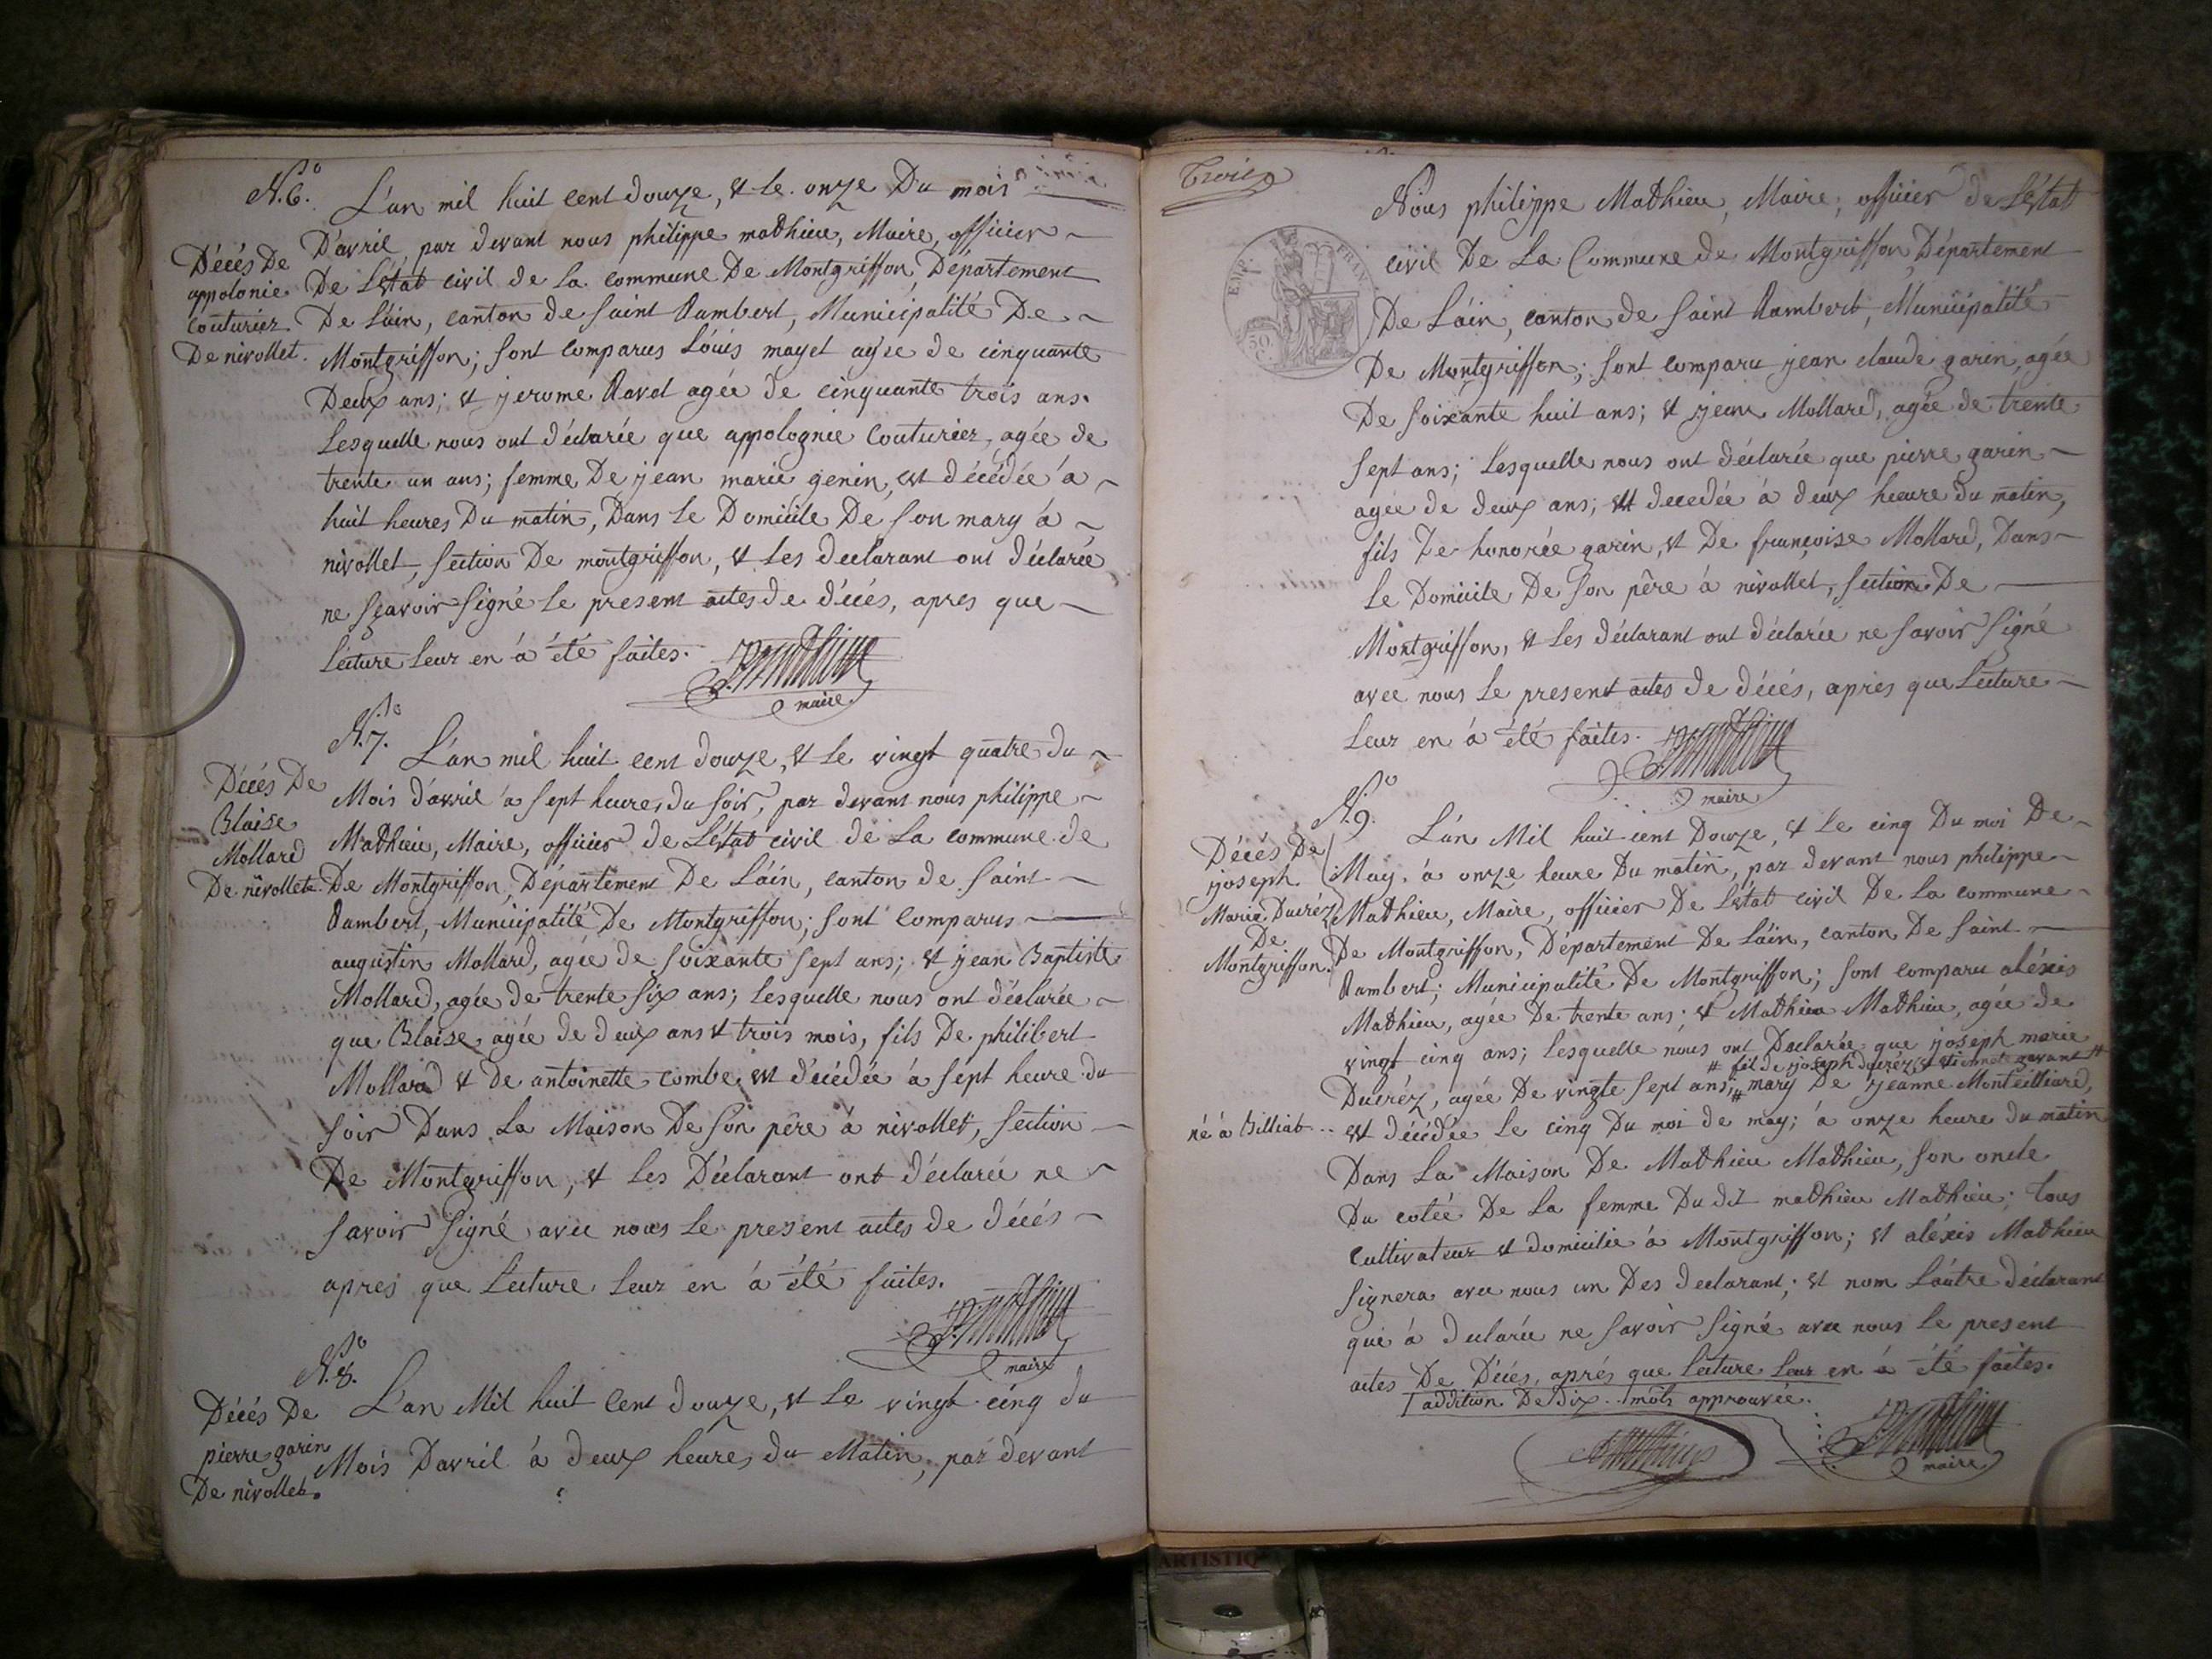 N.o 6.
L'an mil huit cent douze, & le onze Du mois
Décés De
appolonie
Couturier
De nivollet.
D'avril, par devant nous philippe mathieu, Maire, officier
De L'état civil de La commune De Montgriffon, Département
De L'ain, canton de Saint Rambert, Municipalité De
Montgriffon; sont comparus Louis mayet agée de cinquante
Deux ans; & jerome Ravol agée De cinquante trois ans.
Lesquelle nous ont déclarée que appolognie Couturier, agée de
trente un ans; femme De jean marie genin, est décédée à
huit heures Du matin, Dans Le Domicile De son mary à
nivollet, section De montgriffon, & Les declarant ont déclarée
ne sçavoir signé Le present actes de décés, apres que
Lecture Leur en à été faites.
maire
N.o 7.
L'an mil huit cent douze, & Le vingt quatre du
Décés De
Blaise
Mollard
De nivollet.
Mois d'avril à sept heures du soir, par devant nous philippe
Mathieu, Maire, officier de L'état civil de La commune de
De Montgriffon, Département De L'ain, canton de Saint
Rambert, Municipalité De Montgriffon; sont comparus
augustin Mollard, agée de soixante sept ans; & jean Baptiste
Mollard, agée de trente six ans; Lesquelle nous ont déclarée
que Blaise, agée de deux ans & trois mois, fils De philibert
Mollard & De antoinette combe, est décédée à sept heure du
soir Dans La Maison De son père à nivollet, section
De Montgriffon, & Les Déclarant ont déclarée ne
savoir signé avec nous Le present actes de décés
apres que Lecture Leur en à été faites.
maire
N.o 8.
Décés De
pierre garin
De nivollet.
L'an Mil huit Cent douze, & Le vingt cinq du
Mois D'avril à deux heure, du Matin, par devant
Trois
EMP. FRAN.
50.
C.
Nous philippe Mathieu, Maire; officier de L'état
civil De La Commune de Montgriffon, Département
De L'ain, canton de Saint Rambert, Municipalité
De Montgriffon; sont comparu jean claude garin, agée
De soixante huit ans; & jean Mollard, agée de trente
sept ans; Lesquelle nous ont déclarée que pierre garin
agée de deux ans; est decedée à deux heure du matin,
fils De honorée garin, & De françoise Mollard, Dans
Le Domicile De son père à nivollet, section De
Montgriffon, & Les déclarant ont déclarée ne savoir signé
avec nous Le present actes de décés, apries que Lecture
Leur en à été faites.
maire
N.o 9.
L'an Mil huit cent Douze, & Le cinq Du moi De
Décés De
joseph
Marie Ducréz
De
Montgriffon.
May, à onze heure Du matin, par devant nous philippe
Mathieu, Maire, officier De L'état civil De La commune
De Montgriffon, Département De L'ain, canton De Saint
Rambert; Municipalité De Montgriffon; sont comparu aléxis
Mathieu, agée De trente ans; & Mathieu Mathieu, agée de
vingt cinq ans; Lesquelle nous ont Declarée que joseph marie
# fil de joseph ducréz, & etiennete gavant #
Ducréz, agée De vingte sept ans; # mary De jeanne Montilliard,
né à Billiat
est décédée Le cinq Du moi de may; à onze heure du matin
Dans La Maison De Mathieu Mathieu, son oncle
Du cotée De La femme Du dit mathieu Mathieu; tous
Cultivateur & domicilie à Montgriffon; & aléxis Mathieu
signera avec nous un Des declarant; & nom L'autre déclarant
qui à declarée ne savoir signé avec nous Le present
actes De Décés, aprés que Lecture Leur en à été faites.
addition De Dix mots approuvée.
maire